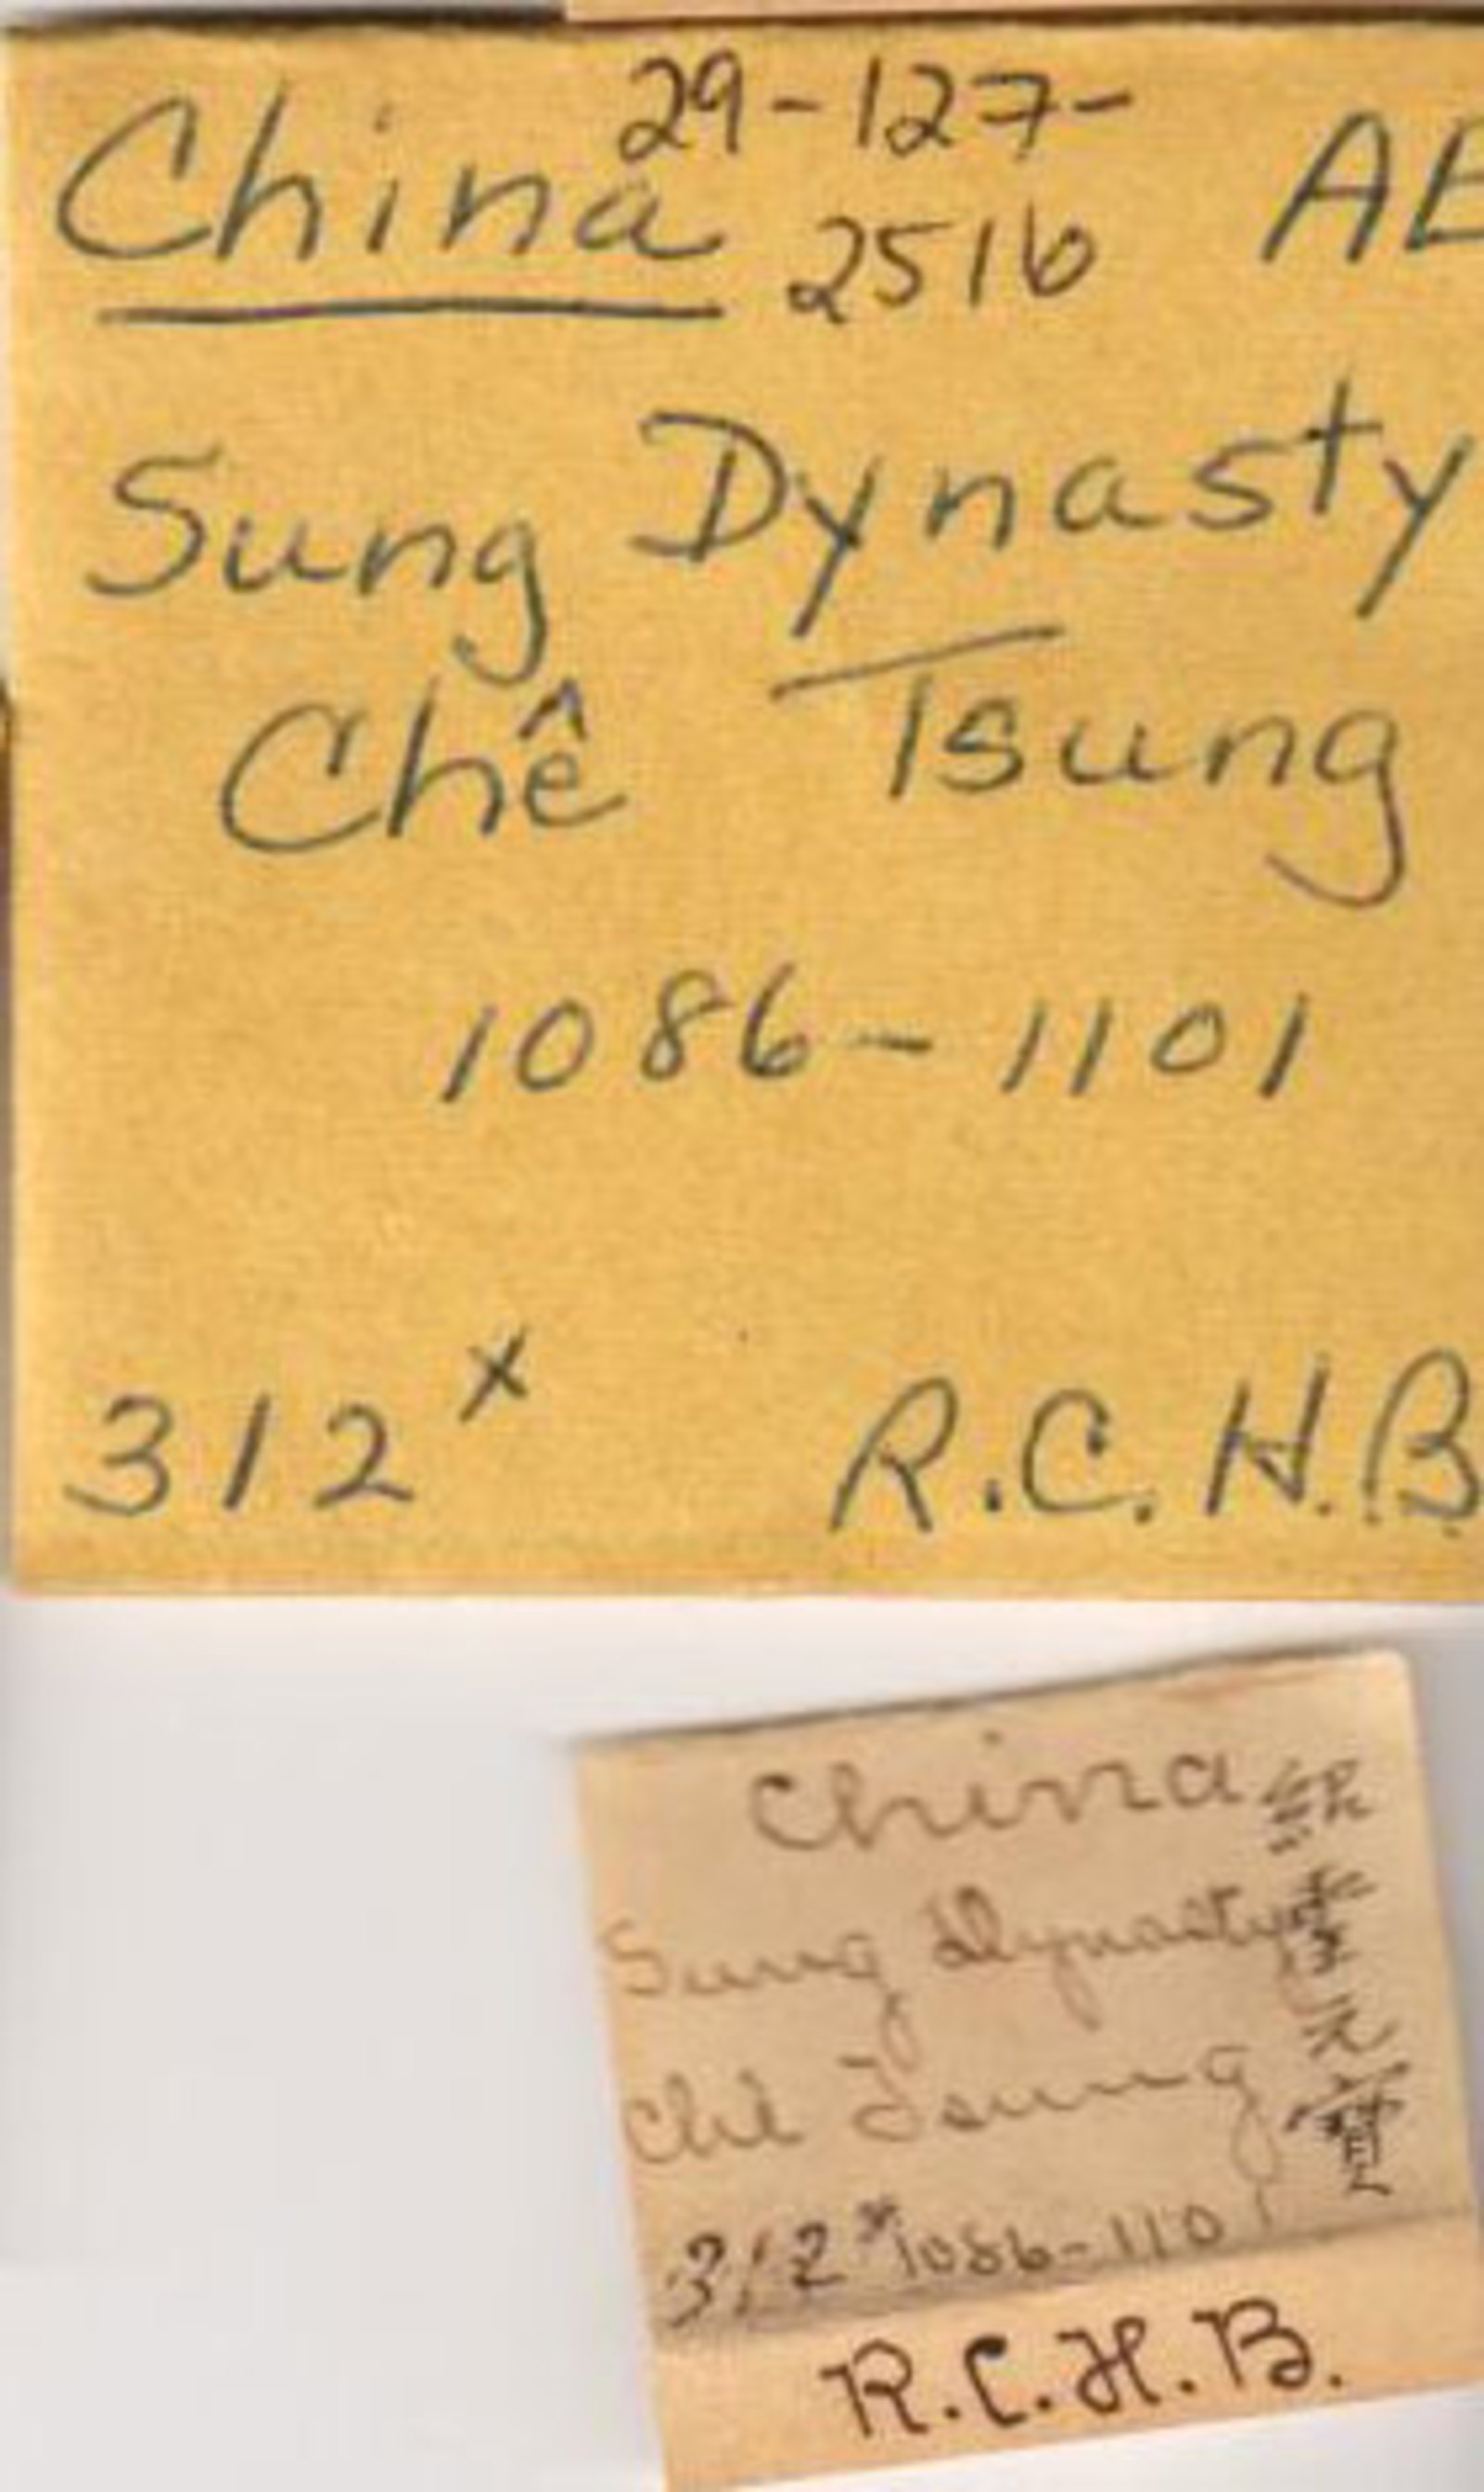 China 29-127-
2516 AE
Sung Dynasty
Chê Tsung
1086-1101
312x
R.C.H.B
China
Sung Dynasty
Chê Tsung
312x 1086-1101
紹聖元寶
R.C.H.B.